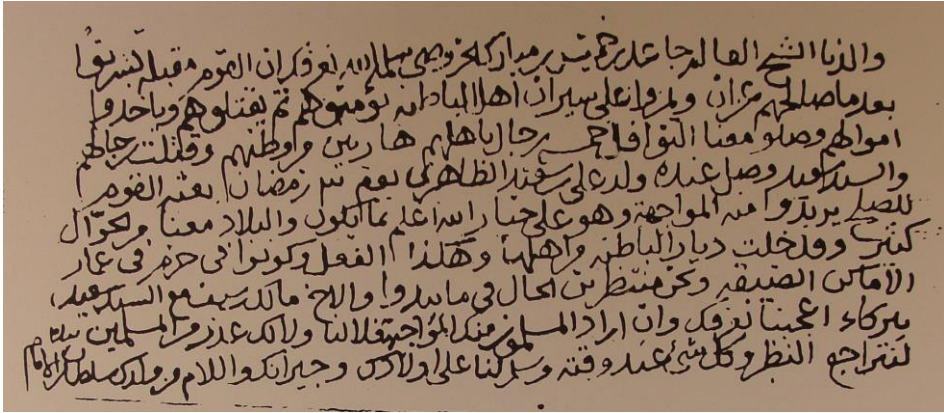 والدنا الشيخ العالم جاعد بن خميس بن مبارك الخروصي سلمه الله نعرفك ان القوم مقبلة لشرقوا
بعد ما صلحهم عزان ولم وا على سيران اهل الباطنه يؤمنوهم ثم يقتلوهم وياخذوا
اموالهم وصلوا معنا النوافل رجال باهلهم هاربين من اوطنهم وقتلت رجالهم
والسيد سعيد وصل عنده ولد علي بن سعيد الظاهري يوم من رمضان بعثه القوم
للصلح يريدوا منه المواجهة وهو على خيار الله اعلم بما يكون والبلاد معنا من تحوال
كثير وقد خلت ديار الباطنه من اهلها وهكذا الفعل وكونوا في حزم في عمار
الاماكن الضيقه ونحن منتظرين الحال في ما يبدوا والاخ مالك بن سيف مع السيد سعيد
ببركاء اعجبنا نعرفك وان اراد المسلمون منك المواجهة فلا لنا ولا لك عذر من المسلمين
لنتراجع النظر وكل شيء عند وقته وسلم لنا على اولادك وجيرانك والسلام من ولدك سلطان بن الامام